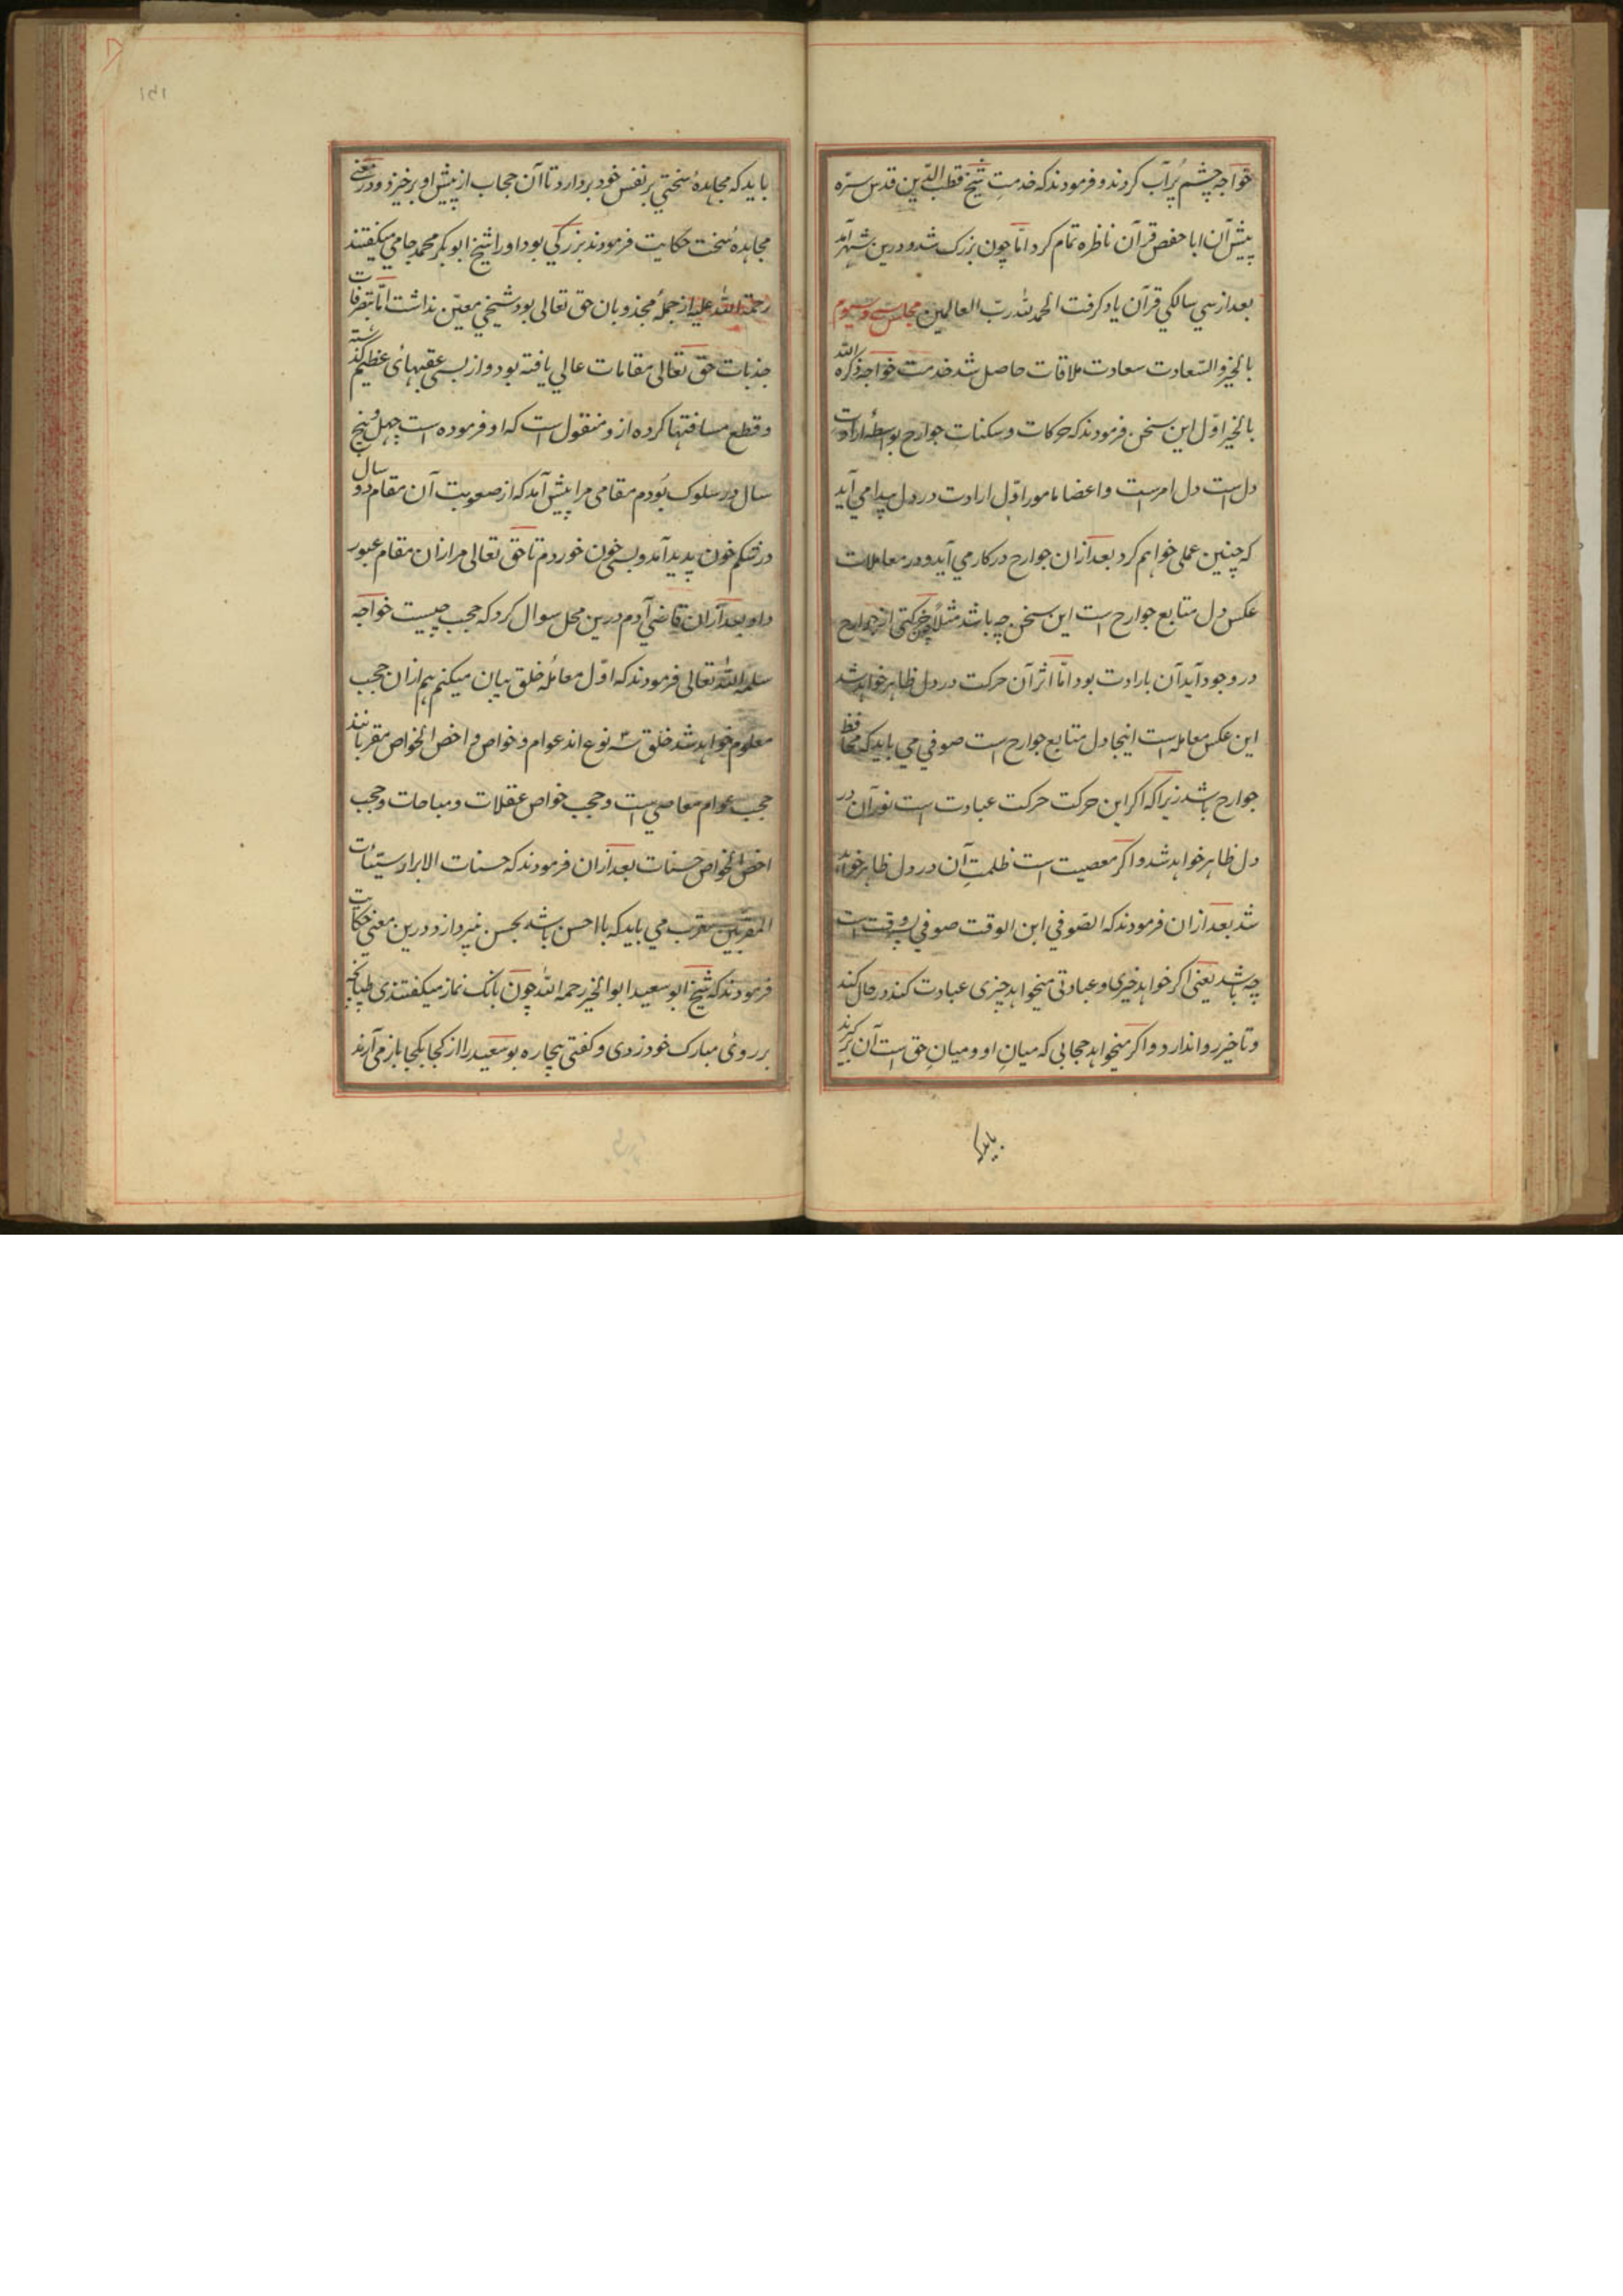 خواجه چشم پُر آب کردند و فرمودند که خدمتِ شیخ قطب الدّین قدس سرّه
پیش آن ابا حفص قرآن ناظره تمام کرد امّا چون بزرک شد و درین شهر آمد
بعد از سی سالکي قرآن یاد کرفت الحمد لله ربّ العالمین مجلس سی و سیوم
بالخیر و السّعادت سعادت ملاقات حاصل شد خدمت خواجه ذکره الله
بالخیر اوّل این سخن فرمودند که حرکات و سکنات جوارح بواسطهٔ ارادت
دل است دل امر است و اعضا مامور اوّل ارادت در دل پیدا مي آید
که چنین عملی خواهم کرد بعد ازان جوارح در کار مي آید و در معاملات
عکس دل متابع جوارح است این سخن چه باشد مثلاً چون حرکتی از جوارح
در وجود آید آن بارادت بود امّا اثر آن حرکت در دل ظاهر خواهد شد
این عکس معامله است اینجا دل متابع جوارح است صوفي مي باید که محافظ
جوارح باشد زیرا که اکر این حرکت حرکت عبادت است نور آن در
دل ظاهر خواهد شد و اکر معصیت است ظلمتِ آن در دل ظاهر خواهد
شد بعد ازان فرمودند که الصّوفي ابن الوقت صوفي پسر وقت است
چه باشد یعنی اکر خواهد خیری و عبادتی میخواهد چیزی عبادت کند در حال کند
و تاخیر روا ندارد و اکر میخواهد حجابی که میانِ او و میانِ حق است آن برکیرند
باید که
باید که مجاهدهٔ سختي بر نفس خود بردارد تا آن حجاب از پیش او برخیزد و درمعنی
مجاهدهٔ سخت حکایت فرمودند بزرکي بود او را شیخ ابوبکر محمد جامي میکفتند
رحمة الله علیه از جملهٔ مجذوبان حق تعالی بود شیخي معیّن نداشت امّا بتصرفات
جذبات حق تعالی مقامات عالي یافته بود و از بسی عقبهای عظیم کذشته
و قطع مسافتها کرده ازو منقول است که او فرموده است چهل و پنج
سال در سلوک بُودم مقامی مرا پیش آمد که از صعوبت آن مقام دو سال
در شکم خون پدید آمد و بسی خون خوردم تا حق تعالی مرا ازان مقام عبور
داد بعد ازان قاضي آدم درین محل سوال کرد که حجب چیست خواجه
سلمه الله تعالی فرمودند که اوّل معاملهٔ خلق بیان میکنم هم ازان حجب
معلوم خواهد شد خلق سه نوع اند عوام و خواص و اخص الخواص مقربانند
حجب عوام معاصي است و حجب خواص غفلات و مباحات و حجب
اخص الخواص حسنات بعد ازان فرمودند که حسنات الابرار سیّئات
المقرّبین مقرب مي باید که با احسن باشد بحسن نپردازد و درین معنی حکایت
فرمودند که شیخ ابو سعید ابو الخیر رحمه الله چون بانک نماز میکفتندی طپانچه
بر روئی مبارک خود زدی و کفتی بیچاره بو سعید را از کجا بکجا باز می آرند